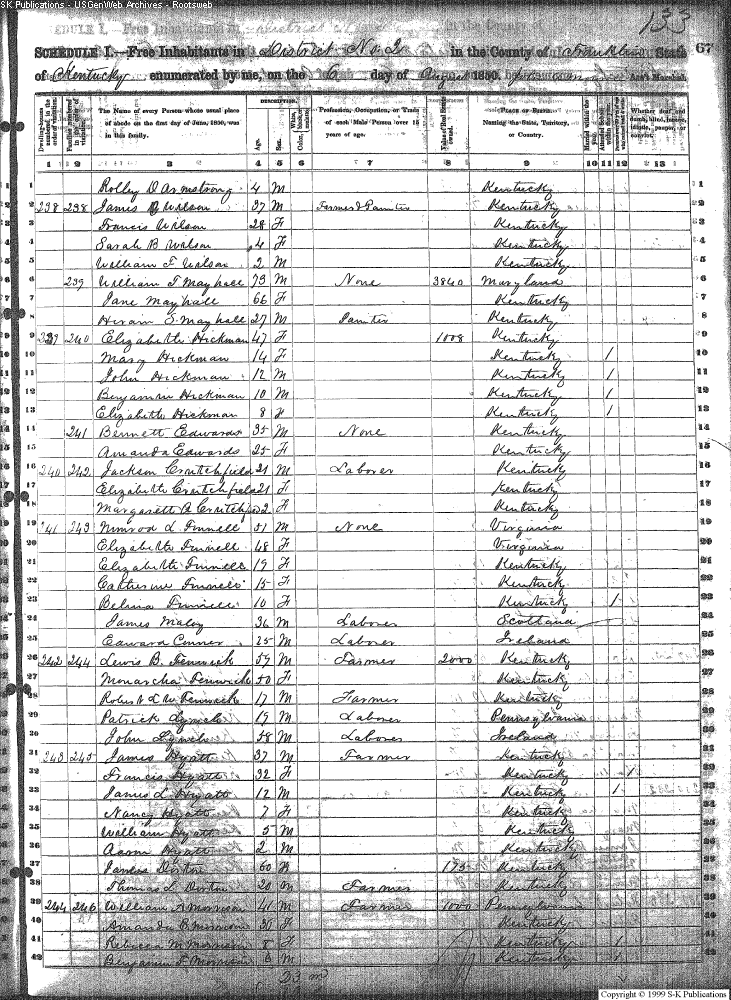 SK Publications - USGenWeb Archives - Rootsweb
133
SCHEDULE I.—Free Inhabitants in District No. 2 in the County of Franklin State 67
of Kentucky enumerated by me, on the 6 day of August 1850. Ass't Marshal.
DESCRIPTION.
Dwelling-houses numbered in the order of visitation. Families numbered in the order of visitation. The Name of every Person whose usual place of abode on the first day of June, 1850, was in this family. Age. Sex. Color, Profession, Occupation, or Trade of each Male Person over 15 years of age. Value of Real Estate owned. PLACE OF BIRTH. Naming the State, Territory, or Country. Married within the year. Whether deaf and dumb, blind, insane, idiotic, pauper, or convict.
1 2 3 4 5 6 7 8 9 10 11 12 13
1 Rolley D Armstrong 4 M Kentucky 1
2 238 238 James Wilson 37 M Farmer & Painter Kentucky 2
3 Francis Wilson 28 F Kentucky 3
4 Sarah B Wilson 4 F Kentucky 4
5 William F Wilson 2 M Kentucky 5
6 239 William T Mayhall 73 M None 3840 Maryland 6
7 Jane Mayhall 66 F Kentucky 7
8 Hiram S Mayhall 27 M Painter Kentucky 8
9 239 240 Elizabeth Hickman 47 F 1008 Kentucky 9
10 Mary Hickman 14 F Kentucky 1 10
11 John Hickman 12 M Kentucky 1 11
12 Benjamin Hickman 10 M Kentucky 1 12
13 Elizabeth Hickman 8 F Kentucky 1 13
14 241 Bennett Edwards 35 M None Kentucky 14
15 Amanda Edwards 25 F Kentucky 15
16 240 242 Jackson Crutchfield 21 M Laborer Kentucky 16
17 Elizabeth Crutchfield 21 F Kentucky 17
18 Margarett 2 F Kentucky 18
19 241 243 Nimrod L Finnell 51 M None Virginia 19
20 Elizabeth Finnell 48 F Virginia 20
21 Elizabeth Finnell 19 F Kentucky 21
22 Catherine Finnell 15 F Kentucky 22
23 Finnell 10 F Kentucky 1 23
24 James Maloy 36 M Laborer Scotland 24
25 Edward Conner 25 M Laborer Ireland 25
26 242 244 Lewis B. Fenwick 59 M Farmer 2000 Kentucky 26
27 Monarcha Fenwick 50 F Kentucky 27
28 Robert L W Fenwick 17 M Farmer Kentucky 28
29 Patrick Lynch 19 M Laborer Pennsylvania 29
30 John Lynch 58 M Laborer Ireland 30
31 243 245 James Hyatt 37 M Farmer Kentucky 31
32 Francis Hyatt 32 F Kentucky 1 32
33 James L Hyatt 12 M Kentucky 1 33
34 Nancy Hyatt 7 F Kentucky 34
35 William Hyatt 5 M Kentucky 35
36 Aaron Hyatt 2 M Kentucky 36
37 James 60 175 Kentucky 37
38 Thomas L 20 M Farmer Kentucky 38
39 244 246 William A Morrison 41 M Farmer 1000 Pennsylvania 39
40 Amanda B Morrison 30 F Kentucky 40
41 Rebecca M Morrison 8 F Kentucky 1 41
42 Benjamin F Morrison 6 M Kentucky 1 42
23 m
Copyright © 1999 S-K Publications